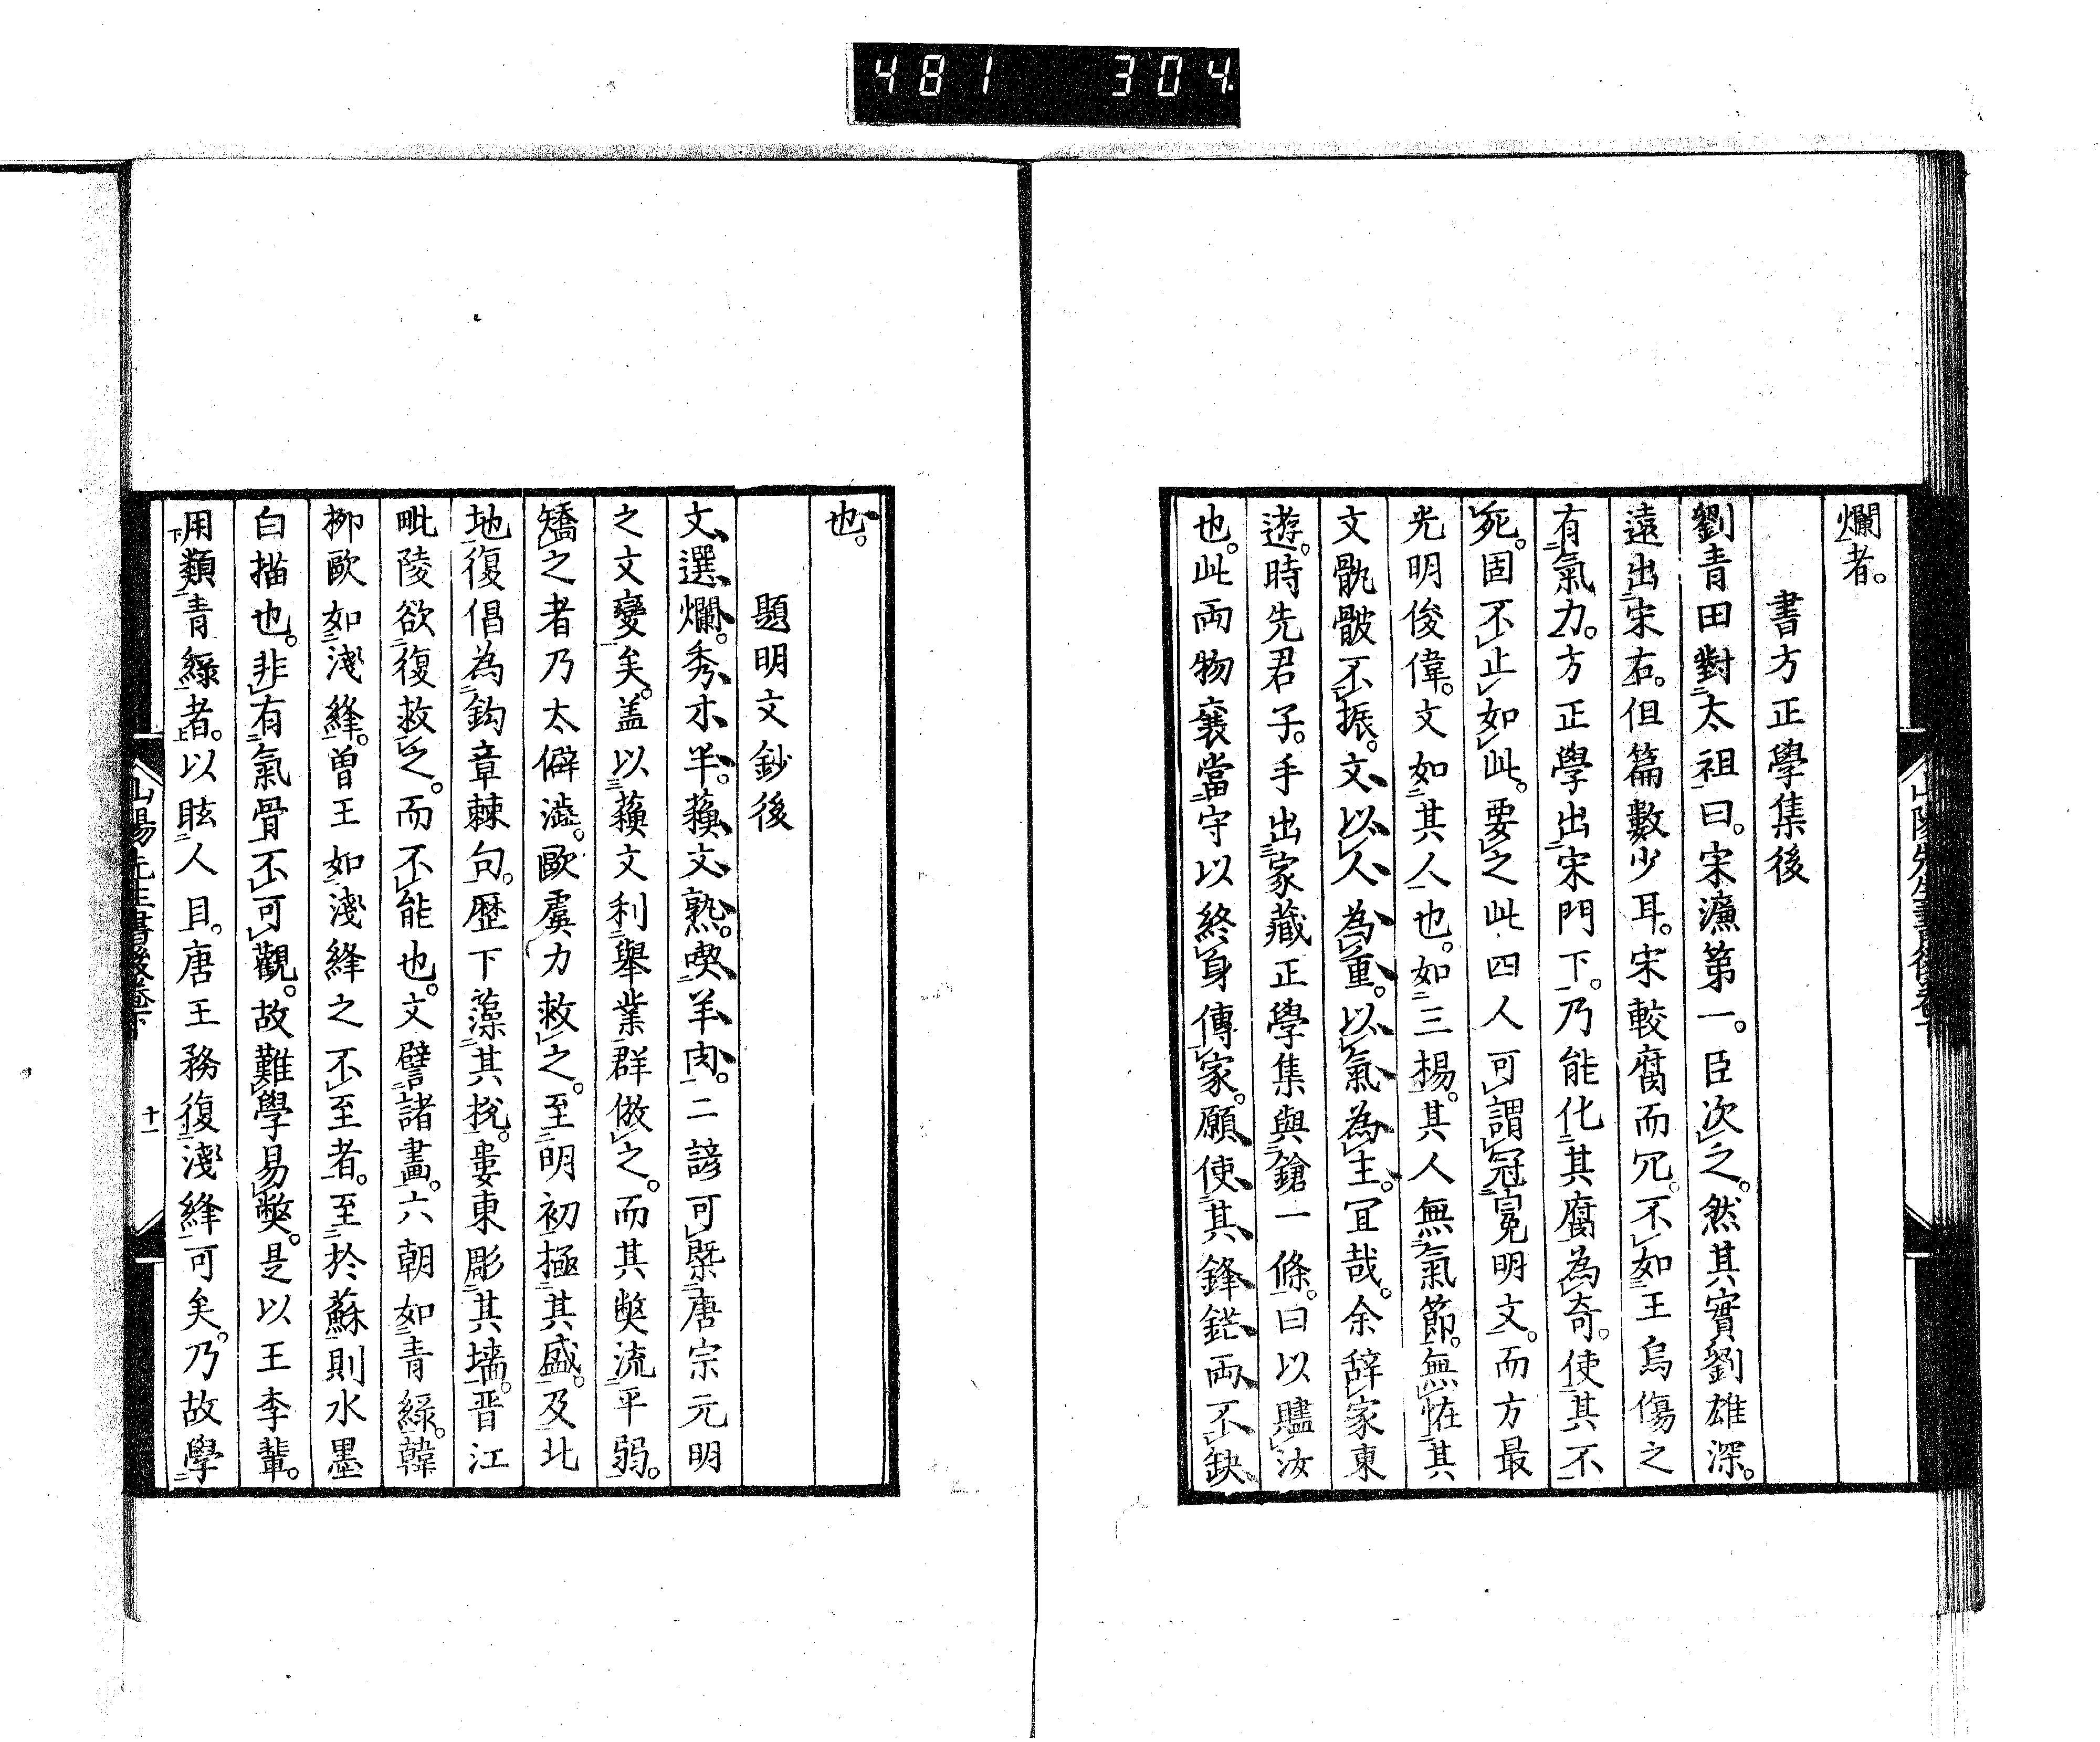 481 304
爛者。
書方正學集後
劉青田對太祖曰。宋濂第一。臣次之。然其實劉雄深。
遠出宋右。但篇數少耳。宋較腐而冗。不如王烏傷之
有氣力。方正學出宋門下。乃能化其腐為奇。使其不
死。固不止如此。要之此四人可謂冠冕明文。而方最
光明俊偉。文如其人也。如三楊。其人無氣節。無恠其
文骩骳不振。文以人為重。以氣為主。冝哉。余辭家東
遊。時先君子。手出家藏正學集與鎗一條。曰以贐汝
也。此両物襄當守以終身傳家。願使其鋒鋩両不缺
也。
題明文鈔後
文選爛。秀才半。蘓文熟。喫羊肉。二諺可槩唐宗元明
之文變矣。盖以蘓文利舉業群倣之。而其獘流平弱。
矯之者乃太僻澁。歐虞力救之。至明初極其盛。及北
地復倡為鈎章棘句。歷下藻其帨。婁東彫其墻。晋江
毗陵欲復救之。而不能也。文譬諸畫。六朝如青緑。韓
柳歐如淺絳。曽王如淺絳之不至者。至於蘇則水墨
白描也。非有氣骨不可觀。故難學易獘。是以王李輩。
用類青緑者。以眩人目。唐王務復淺絳可矣。乃故學
山陽先生書後卷下 十一